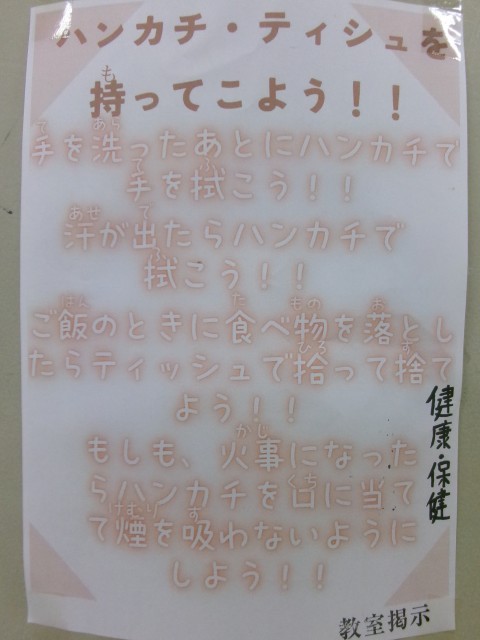 ハンカチ・ティシュを
持ってこよう！！
手を洗ったあとにハンカチで
手を拭こう！！
汗が出たらハンカチで
拭こう！！
ご飯のときに食べ物を落とし
たらティッシュで拾って捨て
よう！！
もしも、火事になった
らハンカチを口に当て
て煙を吸わないように
しよう！！
健康・保健
教室掲示